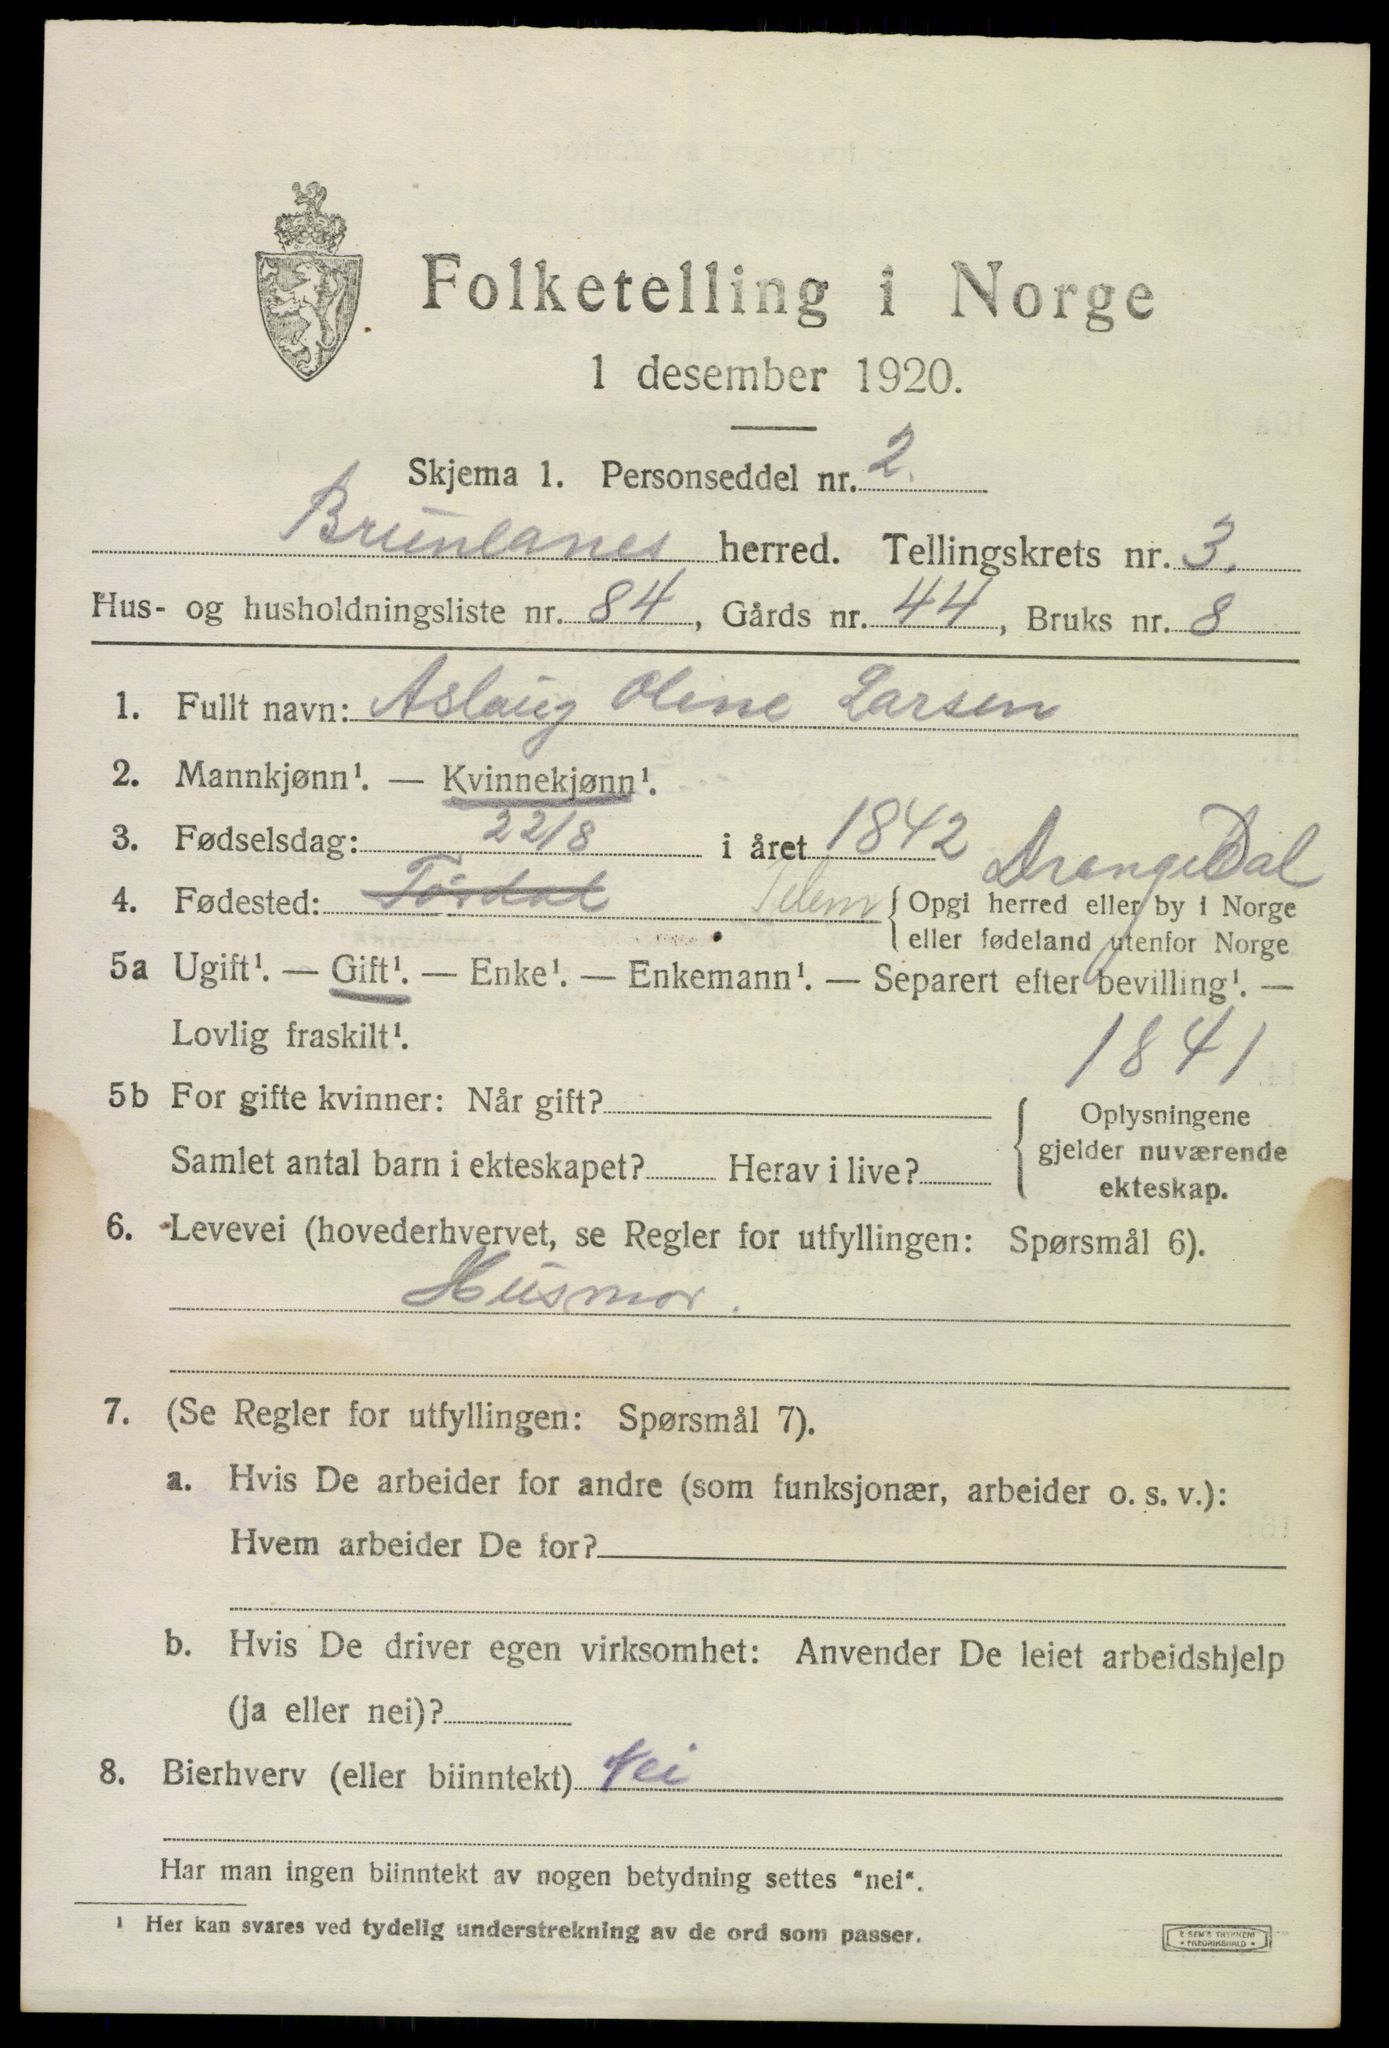 Folketelling i Norge
1 desember 1920.
Skjema 1. Personseddel nr. 2.
Brunlanes herred. Tellingskrets nr. 3.
Hus- og husholdningsliste nr. 84, Gårds nr. 44, Bruks nr. 8
1. Fullt navn: Aslaug Oline Larsen
2. Mannkjønn¹. — Kvinnekjønn¹.
3. Fødselsdag: 22/8 i året 1842
Drangedal
4. Fødested: Tørdal Telem { Opgi herred eller by i Norge
eller fødeland utenfor Norge
5a Ugift¹. — Gift¹. — Enke¹. — Enkemann¹. — Separert efter bevilling¹. —
Lovlig fraskilt¹.
1841
5b For gifte kvinner: Når gift? { Oplysningene
gjelder nuværende
Samlet antal barn i ekteskapet? Herav i live?
ekteskap.
6. Levevei (hovederhvervet, se Regler for utfyllingen: Spørsmål 6).
Husmor.
7. (Se Regler for utfyllingen: Spørsmål 7).
a. Hvis De arbeider for andre (som funksjonær, arbeider o. s. v.):
Hvem arbeider De for?
b. Hvis De driver egen virksomhet: Anvender De leiet arbeidshjelp
(ja eller nei)?
8. Bierhverv (eller biinntekt) Nei
Har man ingen biinntekt av nogen betydning settes "nei".
¹ Her kan svares ved tydelig understrekning av de ord som passer.
E SEM'S TRYKKERI
• FREDRIKSHALD •